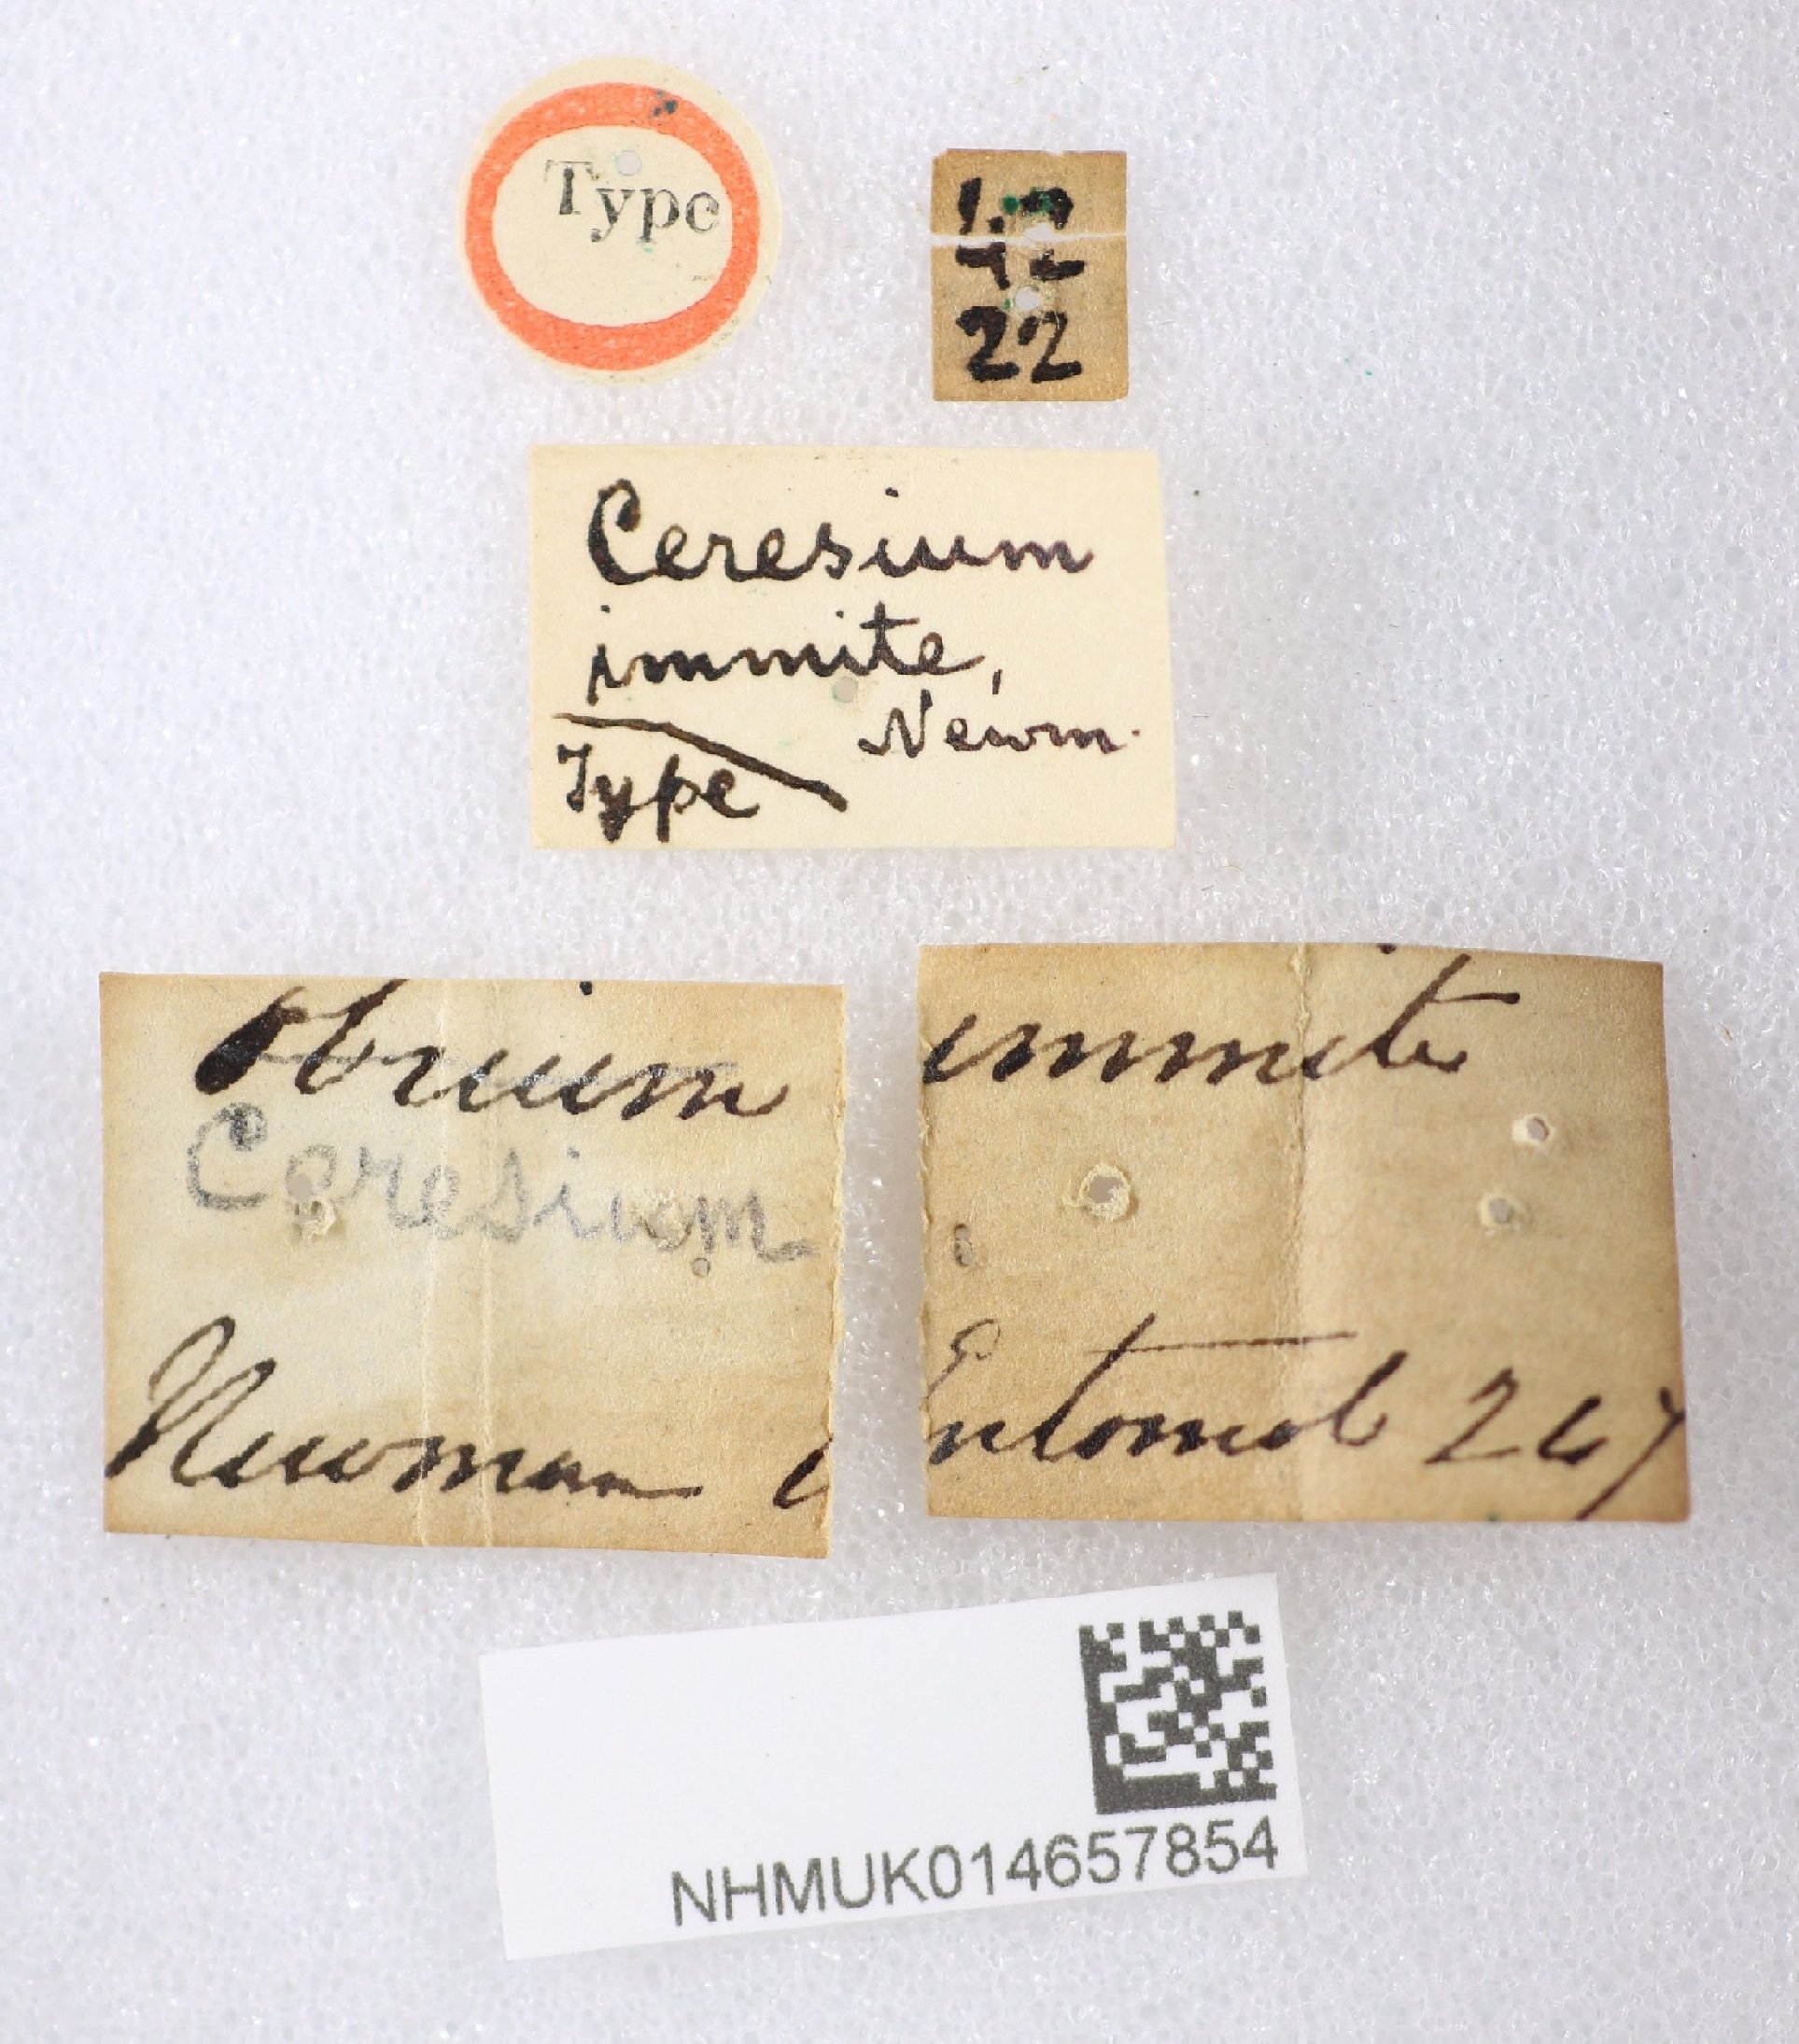 Type
42
22
Ceresium
immite,
Newm.
Type
Obrium immite
Ceresium
Newman Entomol 247
NHMUK014657854